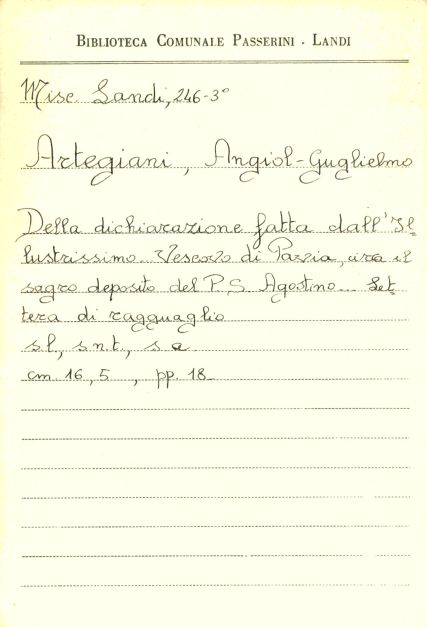 BIBLIOTECA COMUNALE PASSERINI - LANDI
Misc. Landi, 246-3°
Artegiani, Angiol-Guglielmo
Della dichiarazione fatta dall'Il=
lustrissimo Vescovo di Pavia, circa il
sagro deposito del P. S. Agostino... Let=
tera di ragguaglio
s.l., s.n.t., s.a
cm. 16,5 , pp. 18